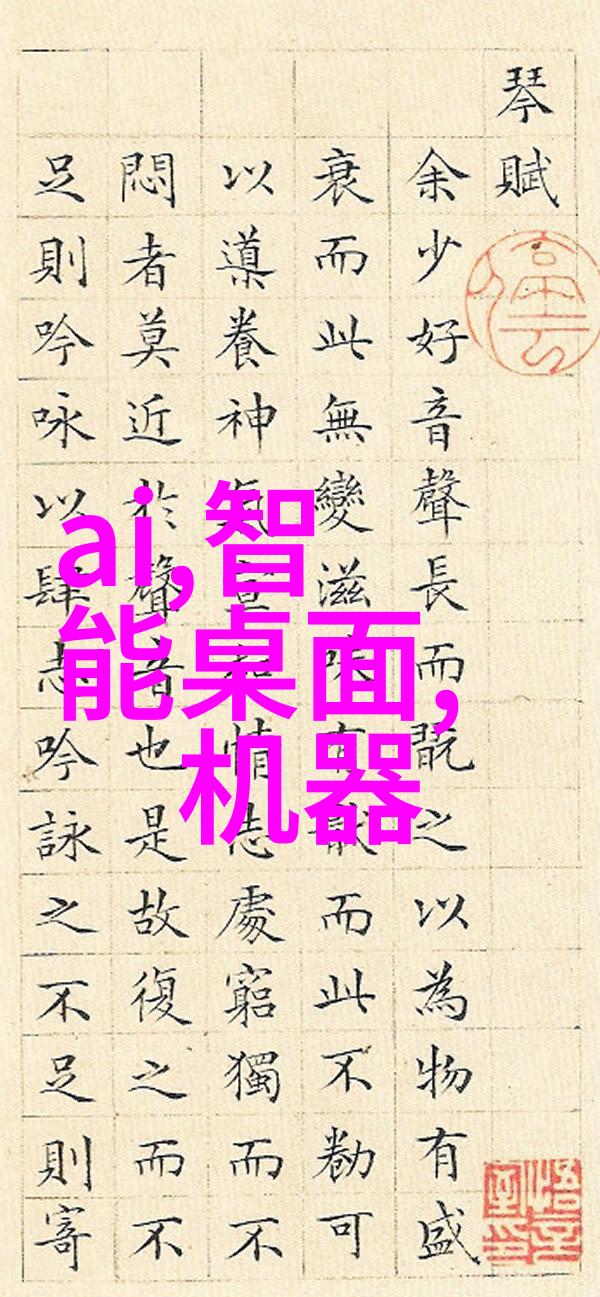 琴賦
余少好音聲長而翫之以為物有盛
衰而此無變滋味有猒而此不勌可
以導養神氣宣和情志處窮獨而不
悶者莫近於聲音也是故復之而不
足則吟咏以肆志吟詠之不足則寄
ai,智
能桌面,
机器